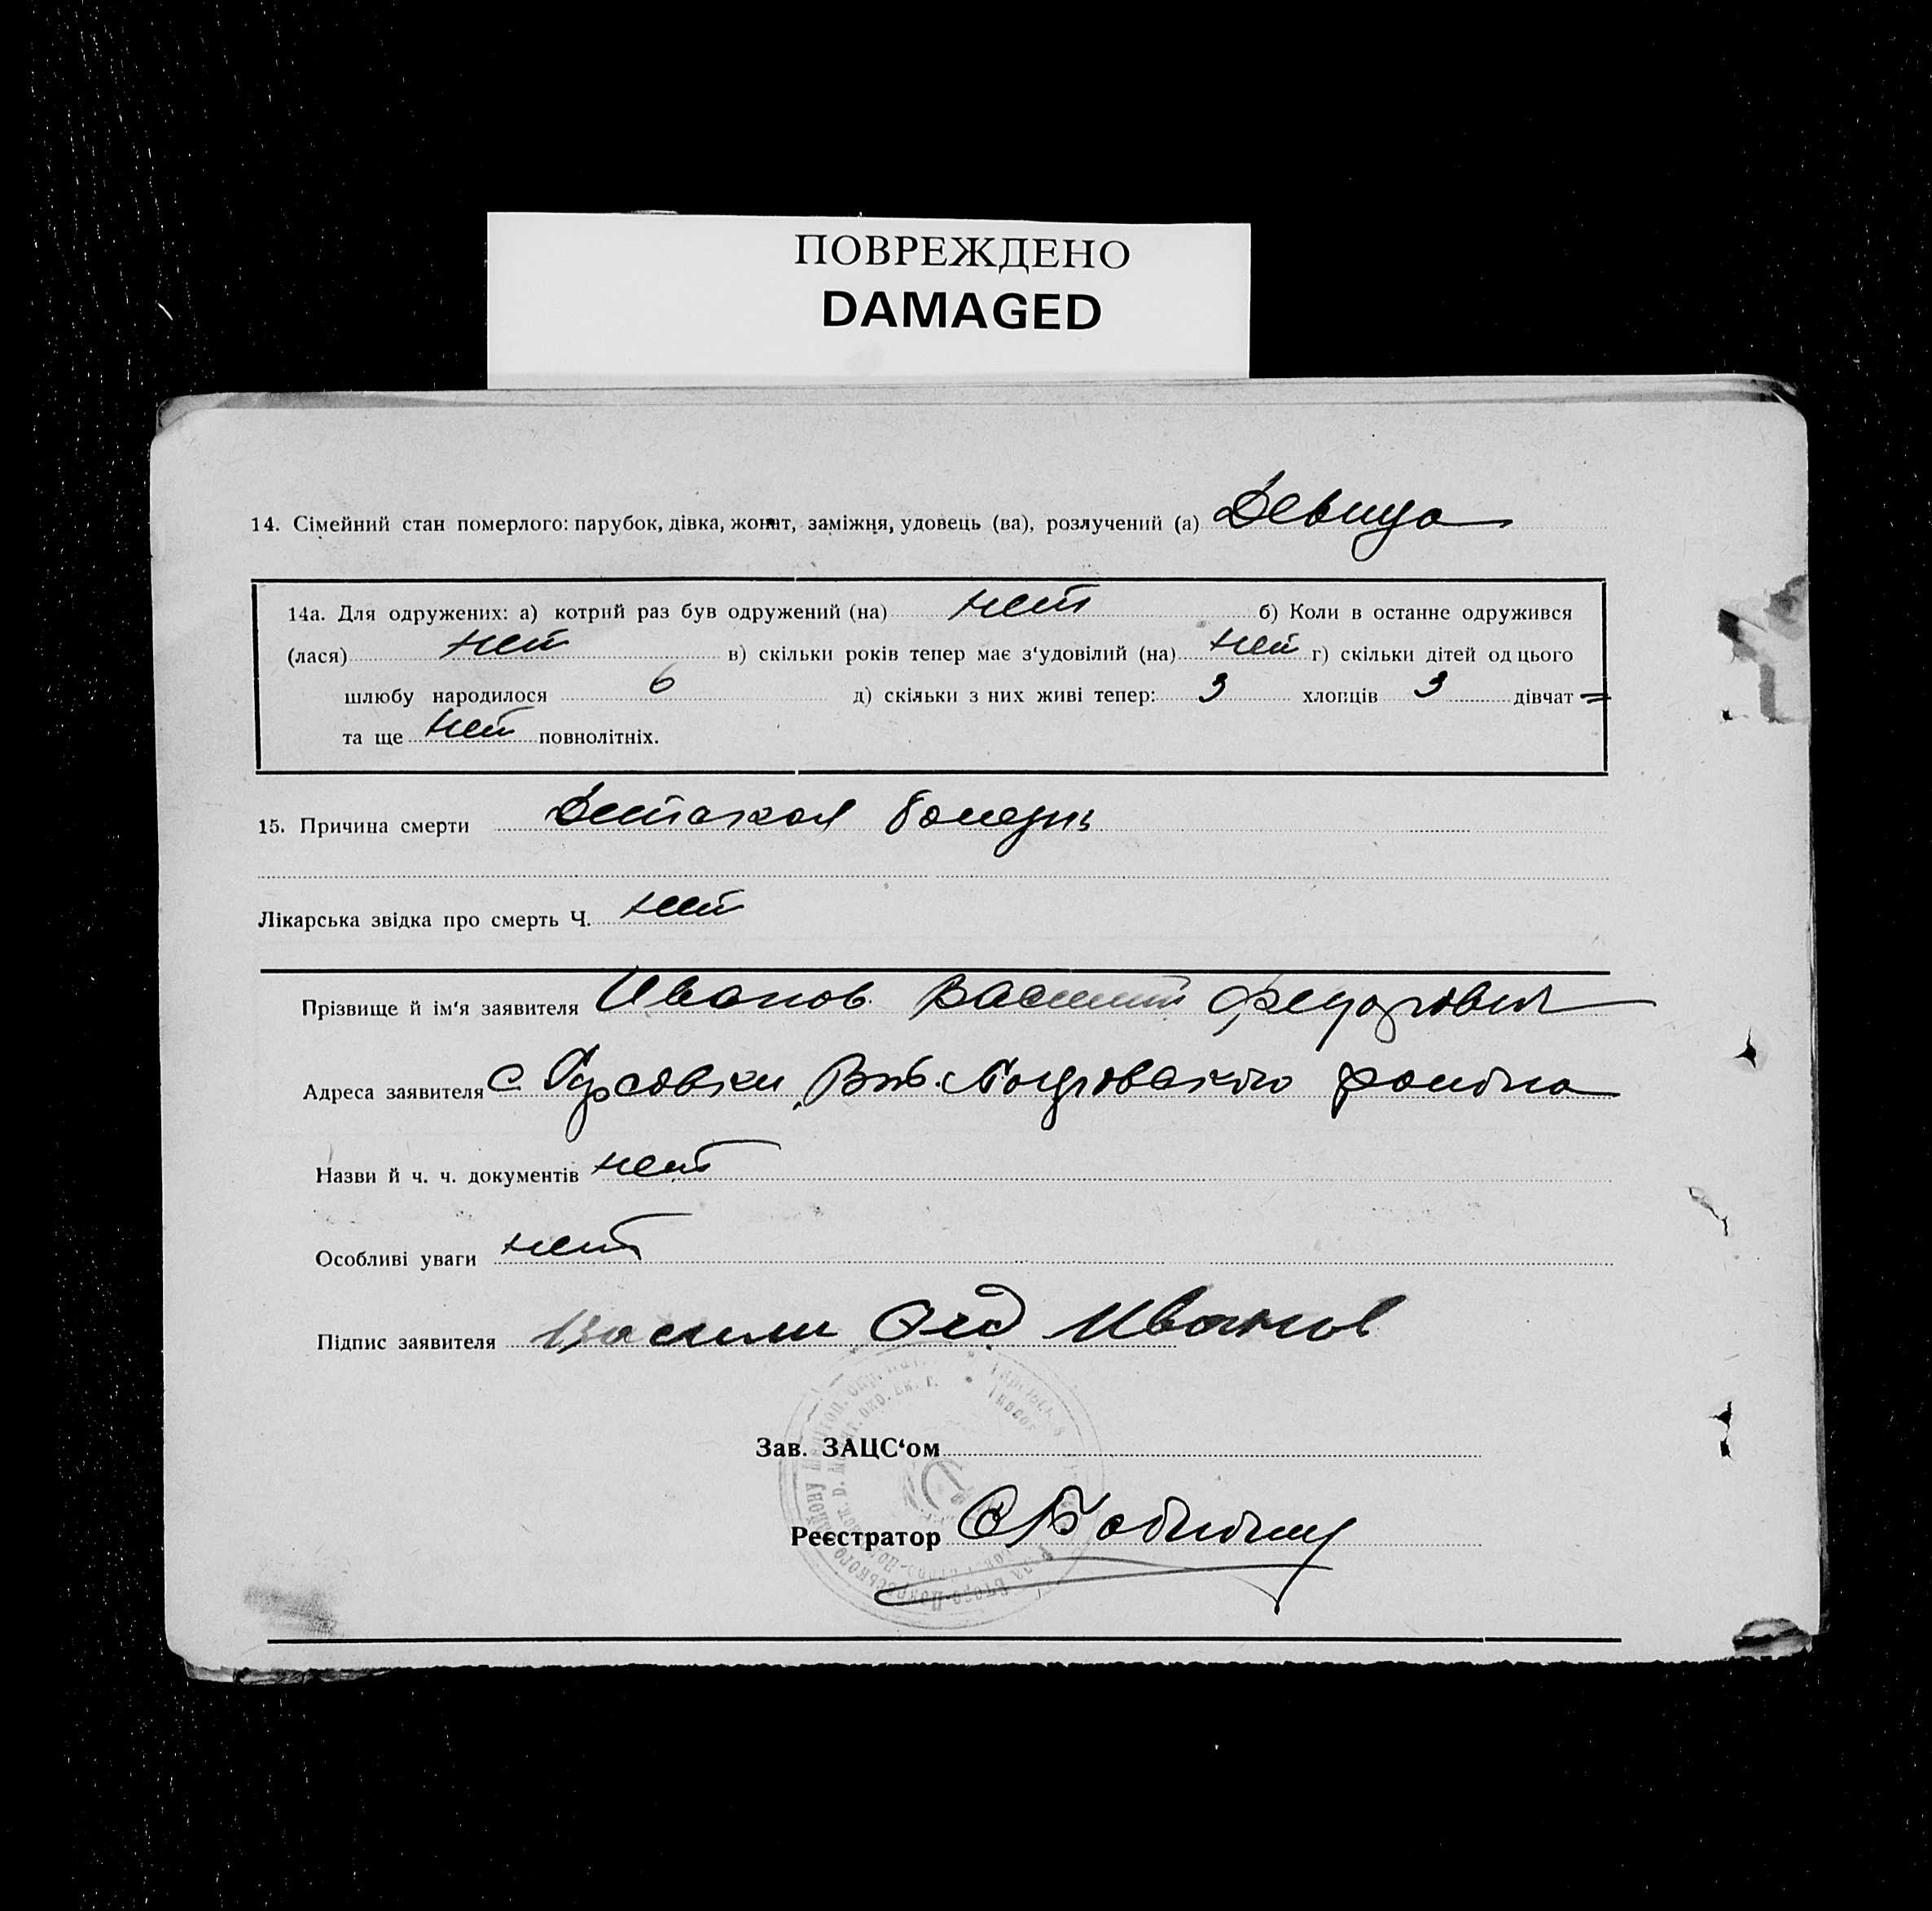 ПОВРЕЖДЕНО
DAMAGED
14. Сімейний стан померлого: парубок, дівка, жонат, заміжня, удовець (ва), розлучений (а) Девица
14а. Для одружених: а) котрий раз був одружений (на) нет б) Коли в останне одружився
(лася) нет в) скільки років тепер має з‘удовілий (на) нет г) скільки дітей од цього
шлюбу народилося 6 д) скільки з них живі тепер: 3 хлопців 3 дівчат =
та ще нет повнолітніх.
15. Причина смерти Детская болезнь
Лікарська звідка про смерть Ч. нет
Прізвище й ім‘я заявителя Иванов Василий Федорович
Адреса заявителя с. района
Назви й ч. ч. документів нет
Особливі уваги нет
Підпис заявителя Васили Иванов
Зав. ЗАЦС‘ом
Реєстратор